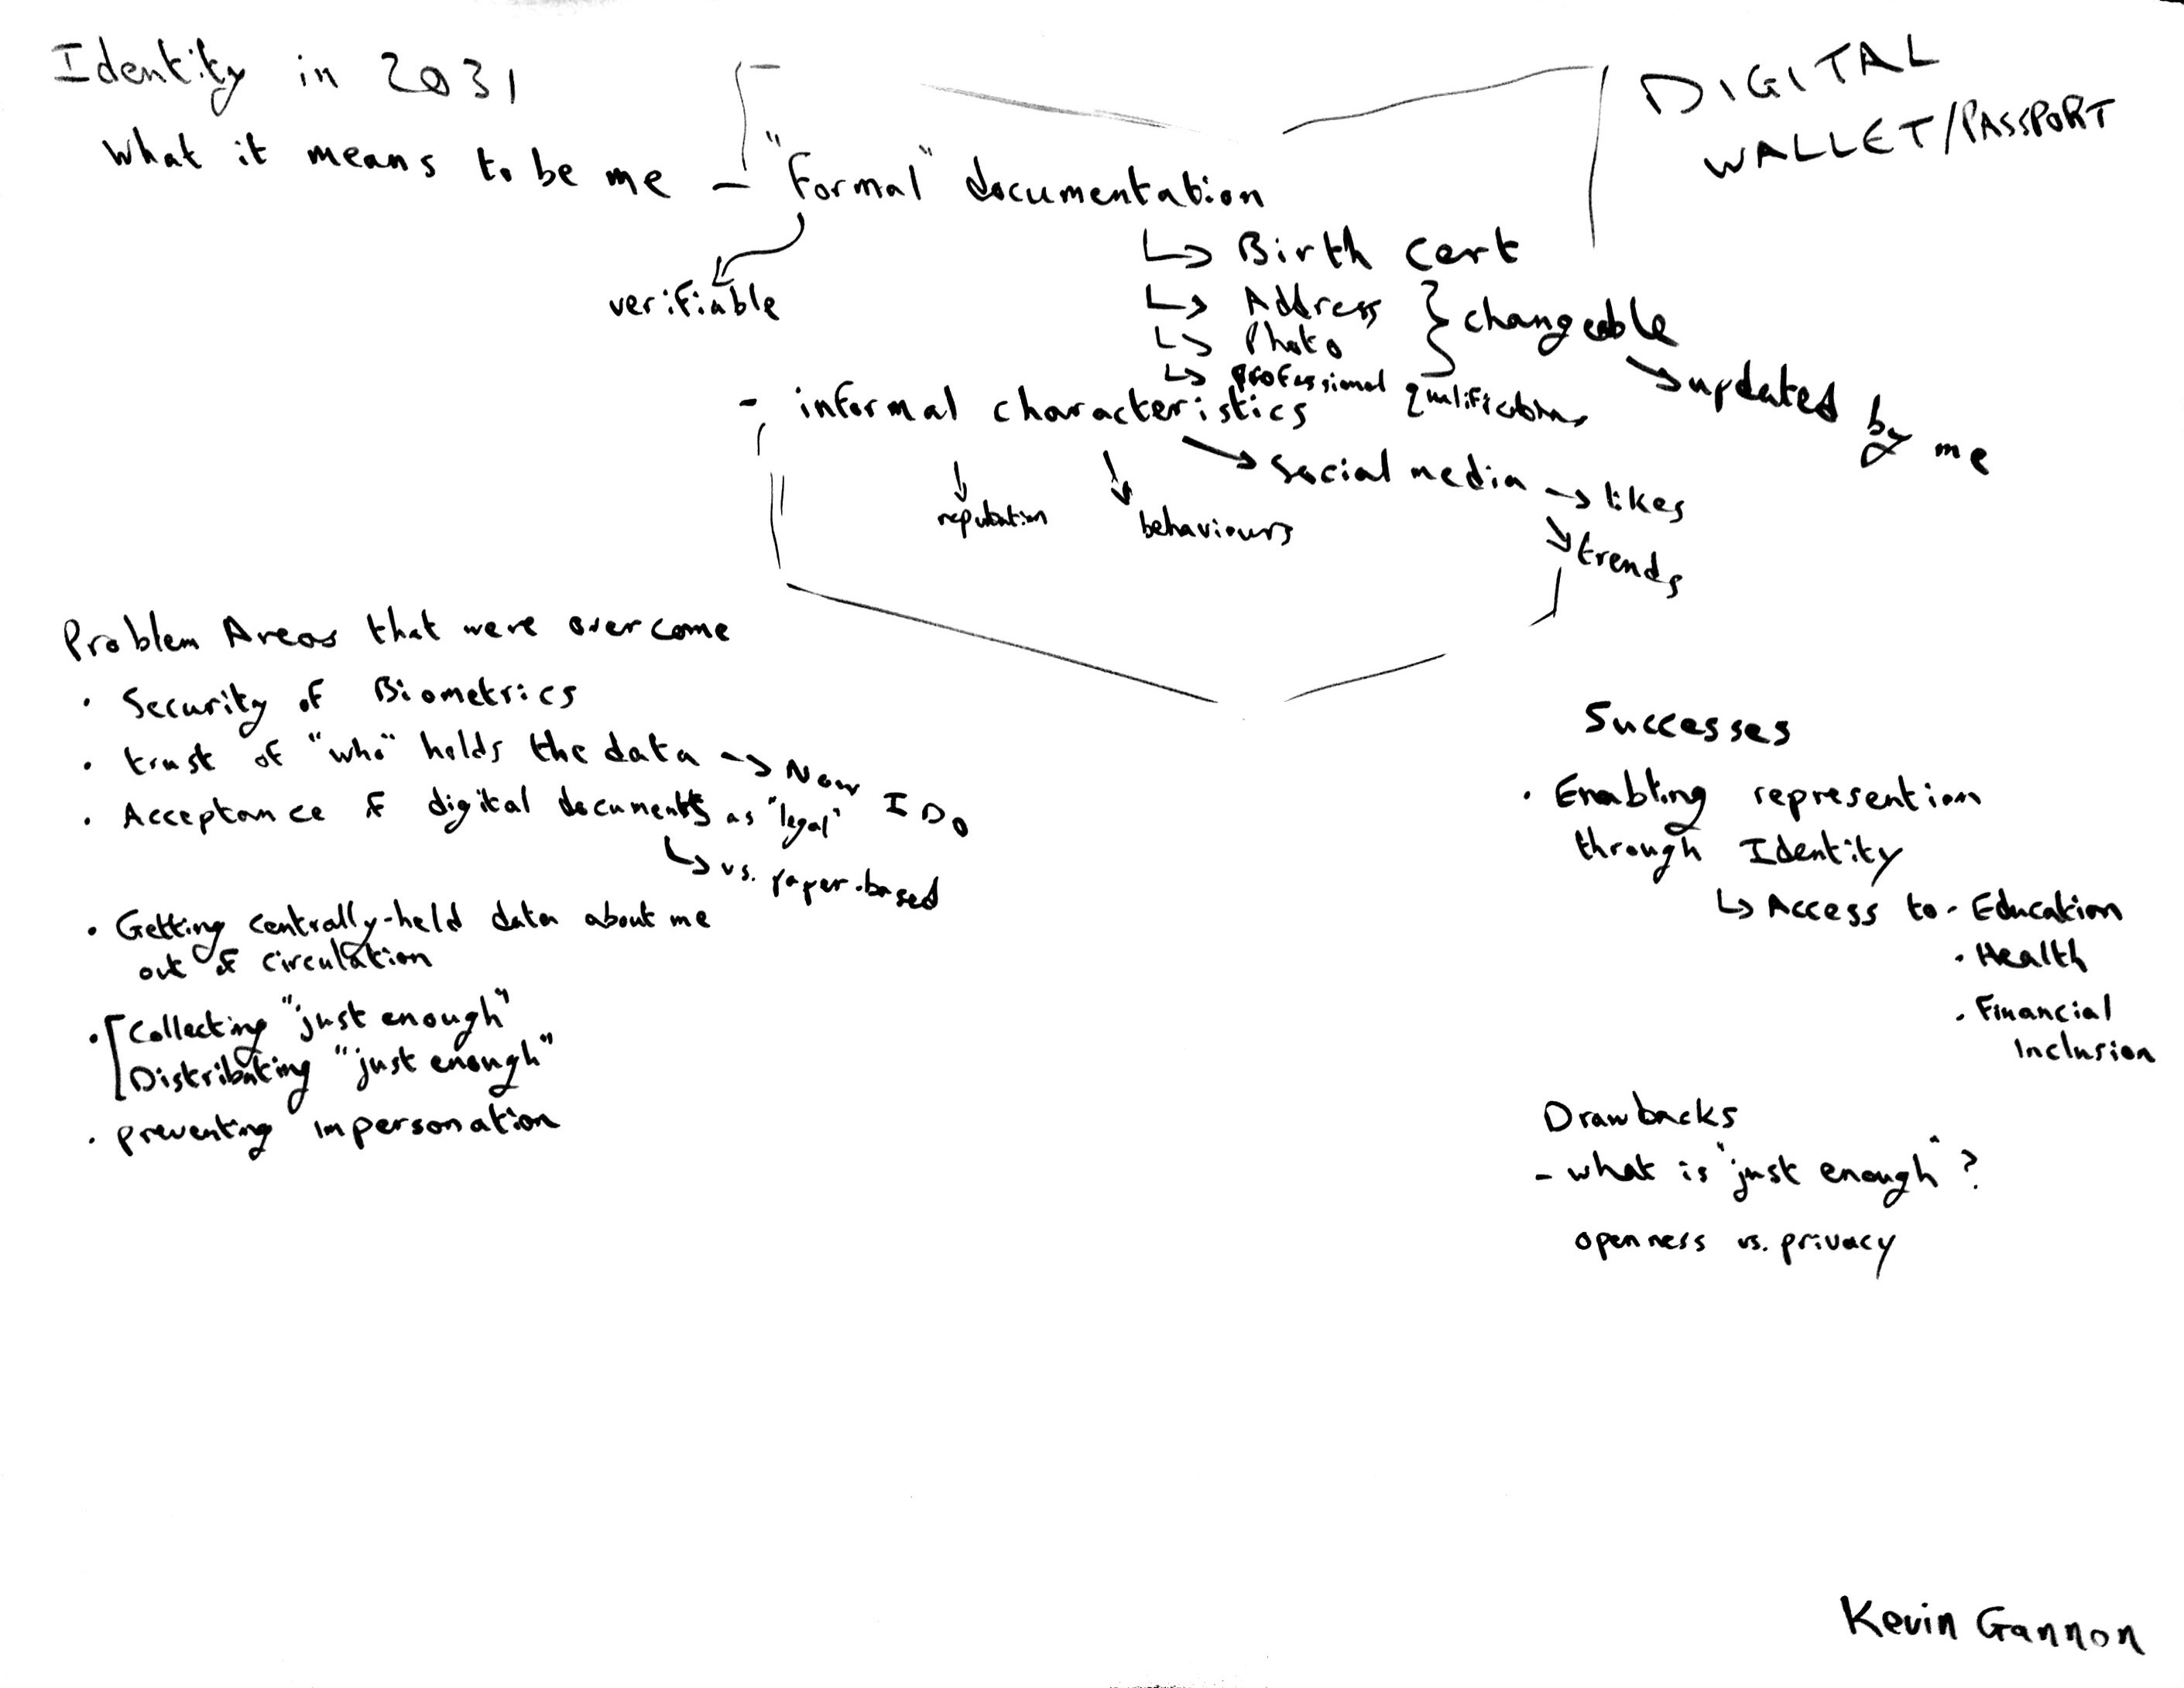 Identity in 2031
DIGITAL
WALLET/PASSPORT
What it means to be me - "Formal" documentation
verifiable
↳ Birth cert
↳ Address
↳ Photo
} changeable
→ updated by me
↳ professional qualifications
- informal characteristics
→ social media → likes
→ trends
↓ reputation
↓ behaviours
Problem Areas that were overcome
• Security of Biometrics
• trust of "who" holds the data → Now IDo
• Acceptance of digital documents as "legal"
↳ vs. paper-based
• Getting centrally-held data about me
out of circulation
• [Collecting "just enough"
Distributing "just enough"
• preventing impersonation
Successes
• Enabling represention
through Identity
↳ Access to - Education
• Health
• Financial
Inclusion
Drawbacks
- what is "just enough"?
openness vs. privacy
Kevin Gannon